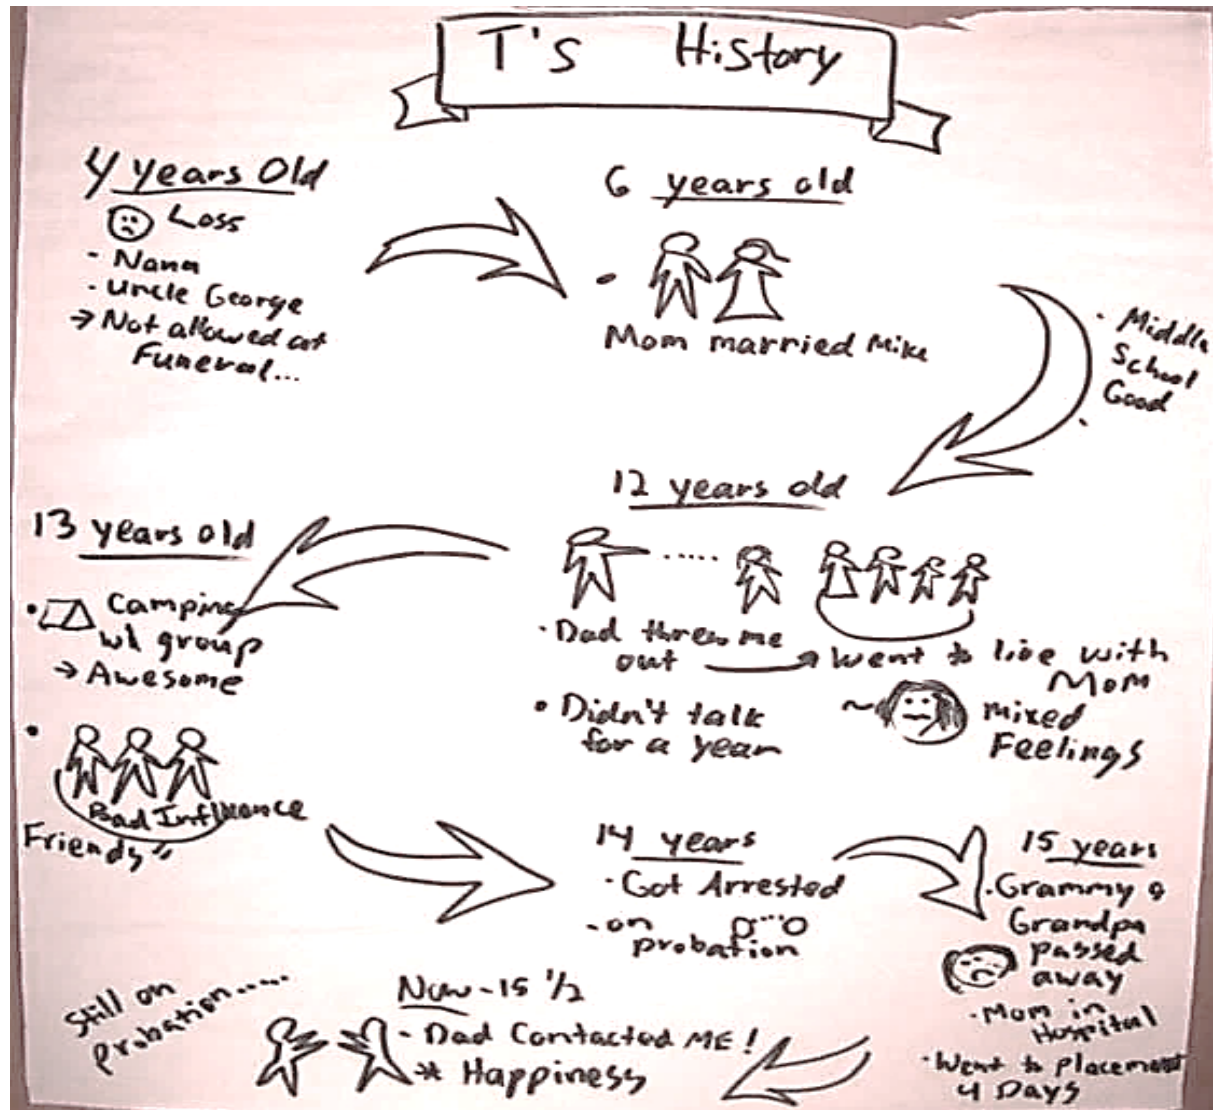 T's History
4 years Old
Loss
- Nana
- Uncle George
→ Not allowed at
Funeral...
6 years old
Mom married Mike
· Middle
School
Good
12 years old
· Dad threw me
out
Went to live with
Mom
• Didn't talk
for a year
~ mixed
Feelings
13 years old
• Camping
w/ group
→ Awesome
•
Bad Influence
Friends"
14 years
· Got Arrested
- on
probation
15 years
· Grammy &
Grandpa
passed
away
· Mom in
Hospital
· Went to placement
4 Days
Now - 15 1/2
- Dad Contacted ME!
* Happiness
Still on
probation.....